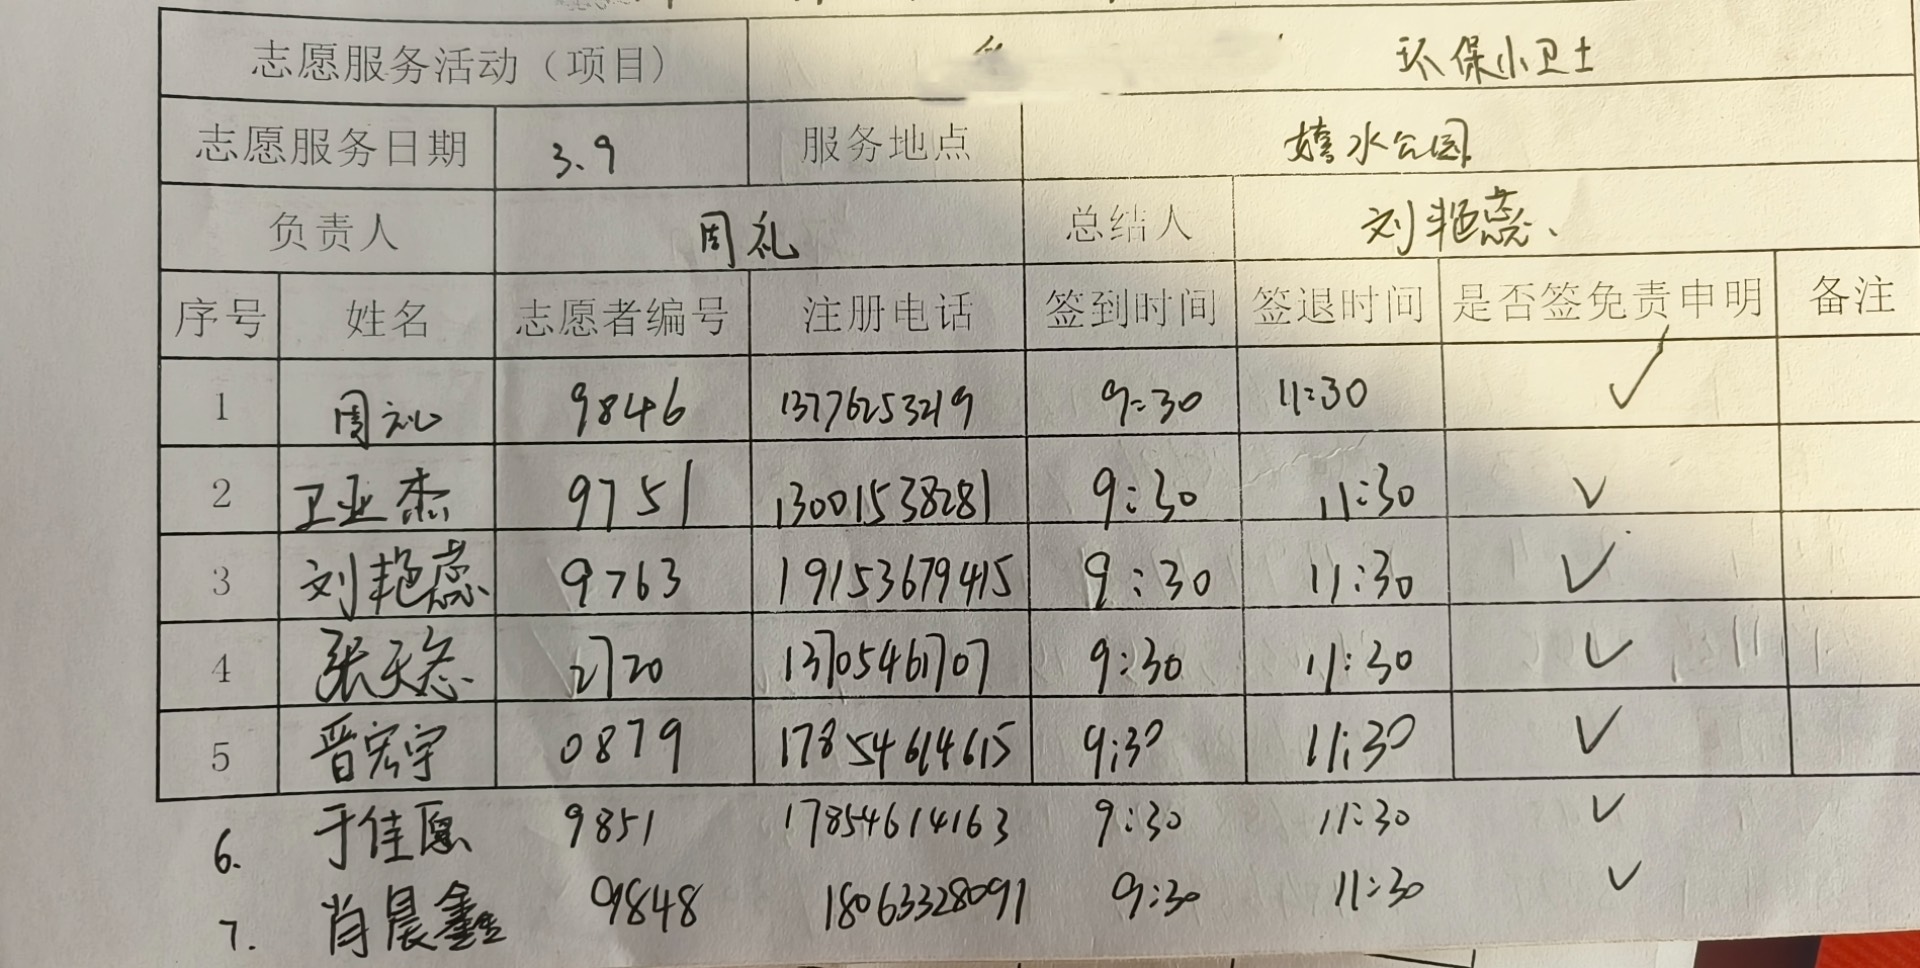 志愿服务活动（项目） 环保小卫士
志愿服务日期 3.9 服务地点 嬉水公园
负责人 周礼 总结人 刘艳蕊
序号 姓名 志愿者编号 注册电话 签到时间 签退时间 是否签免责申明 备注
1 周礼 9846 13776253219 9:30 11:30 ✓
2 卫亚杰 9751 13001538281 9:30 11:30 ✓
3 刘艳蕊 9763 19153679415 9:30 11:30 ✓
4 张天 2720 13705461707 9:30 11:30 ✓
5 晋宏宇 0879 17854614615 9:30 11:30 ✓
6. 于佳愿 9851 17854614163 9:30 11:30 ✓
7. 肖晨鑫 9848 18063328091 9:30 11:30 ✓